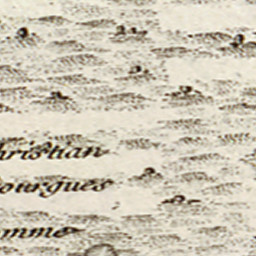 hristian
ourgues
amme